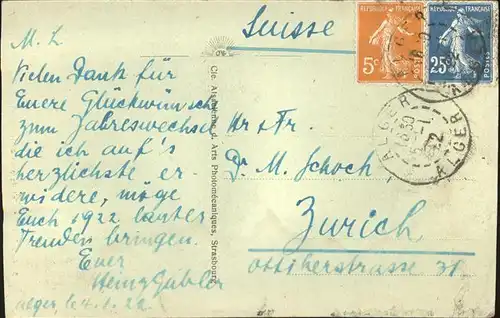 M. L.
Vielen Dank für
Euere Glückwünsche
zum Jahreswechsel
die ich auf's
herzlichste er-
widere, möge
Euch 1922 lauter
Freuden bringen.
Euer
Heinz Gubler
Alger le 4.1.22
Suisse
Hr & Fr.
Dr. M. Schoch
Zurich
Ottikerstrasse 31
Cie. Alsacienne d. Arts Photomécaniques, Strasbourg
REPUBLIQUE FRANÇAISE
5c
POSTES
REPUBLIQUE FRANÇAISE
25c
POSTES
ALGER
22
ALGER